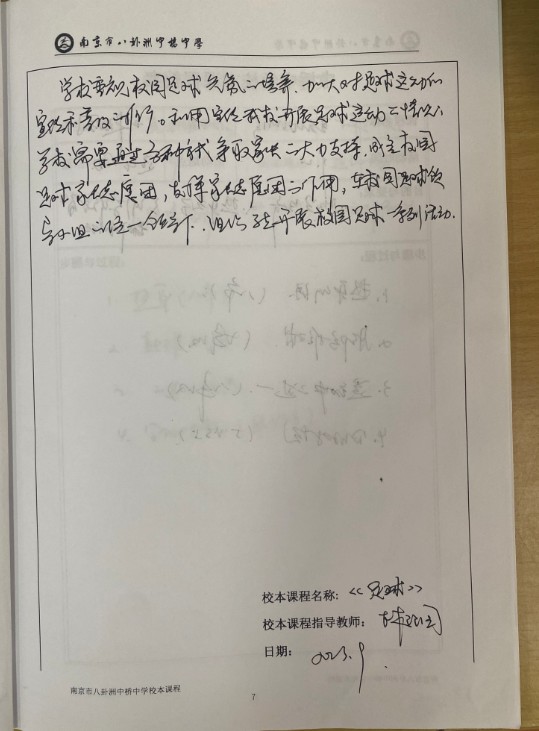 南京市八卦洲中桥中学
学校重视校园足球气氛的培养，加大对足球运动的
宣传和普及。利用宣传我校开展足球运动的情况，
学校需要通过各种方式争取家长的大力支持，成立校园
足球家长委员团，发挥家长委员团的作用，在校园足球领
导小组的统一领导下，组织开展校园足球一系列活动。
校本课程名称：《足球》
校本课程指导教师：
日期：2023.9
南京市八卦洲中桥中学校本课程
7